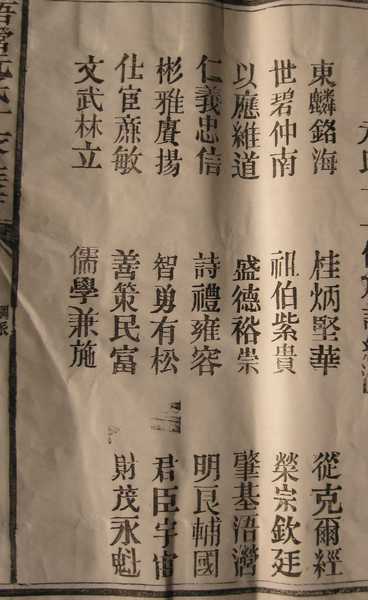 東麟銘海 桂炳堅華 從克爾經
世碧仲南 祖伯紫貴 榮宗欽廷
以應維道 盛德裕崇 肇基浯灣
仁義忠信 詩禮雍容 明良輔國
彬雅賡揚 智勇有松 君臣宇宙
仕宦敏 善策民富 財茂永魁
文武林立 儒學兼施